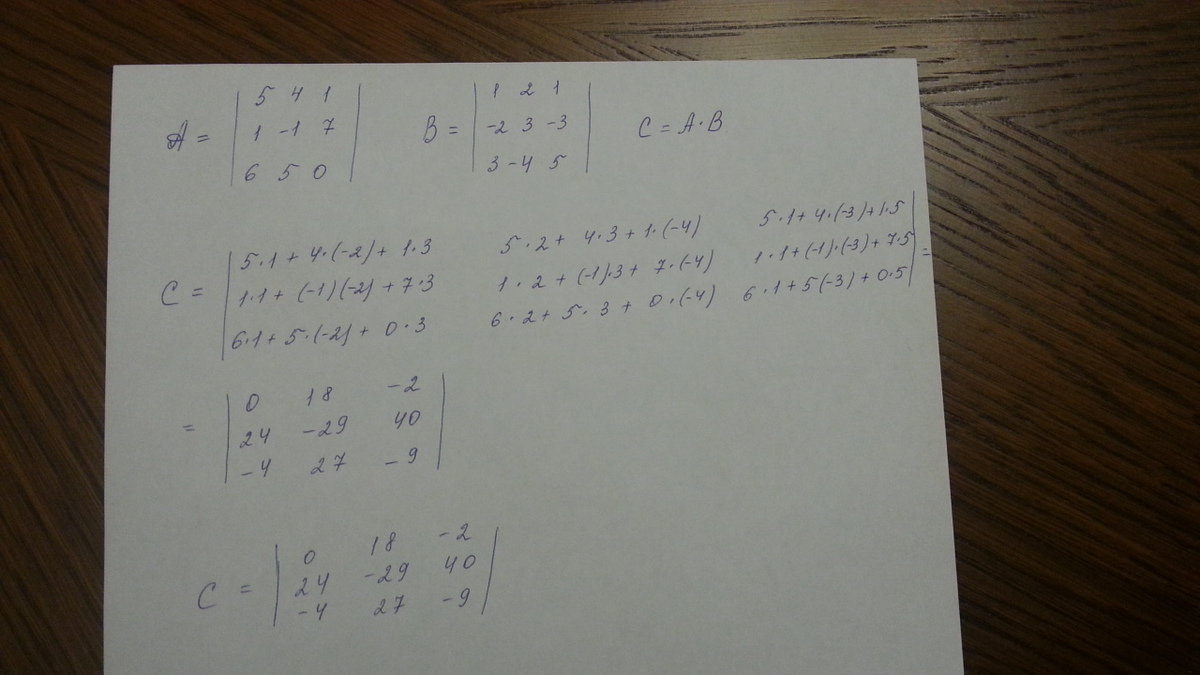 A = | 5 4 1 | B = | 1 2 1 | C = A·B
| 1 -1 7 | | -2 3 -3 |
| 6 5 0 | | 3 -4 5 |
C = | 5·1 + 4·(-2) + 1·3 5·2 + 4·3 + 1·(-4) 5·1 + 4·(-3) + 1·5 |
| 1·1 + (-1)(-2) + 7·3 1·2 + (-1)·3 + 7·(-4) 1·1 + (-1)·(-3) + 7·5 | =
| 6·1 + 5·(-2) + 0·3 6·2 + 5·3 + 0·(-4) 6·1 + 5(-3) + 0·5 |
= | 0 18 -2 |
| 24 -29 40 |
| -4 27 -9 |
C = | 0 18 -2 |
| 24 -29 40 |
| -4 27 -9 |